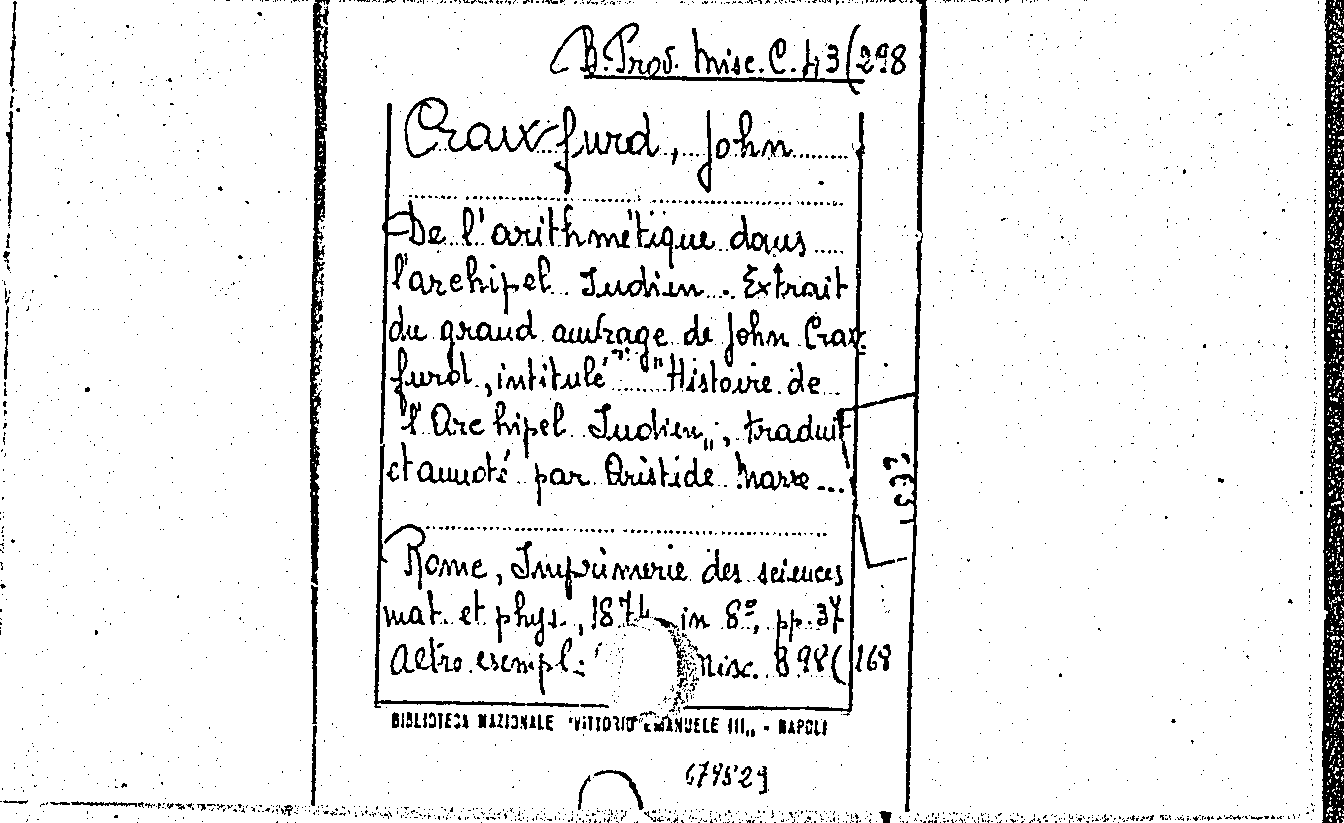 B. Prov. Misc. C. 43(298
Crawfurd, John
De l'arithmétique dans
l'archipel Indien. Extrait
du grand ouvrage de John Craw=
furd, intitulé "Histoire de
l'Archipel Indien", traduit
et annoté par Aristide Marre...
Rome, Imprimerie des sciences
mat. et phys., 1874 in 8º, pp. 37
Altro esempl: Misc. B 98(168
BIBLIOTECA NAZIONALE "VITTORIO EMANUELE III" - NAPOLI